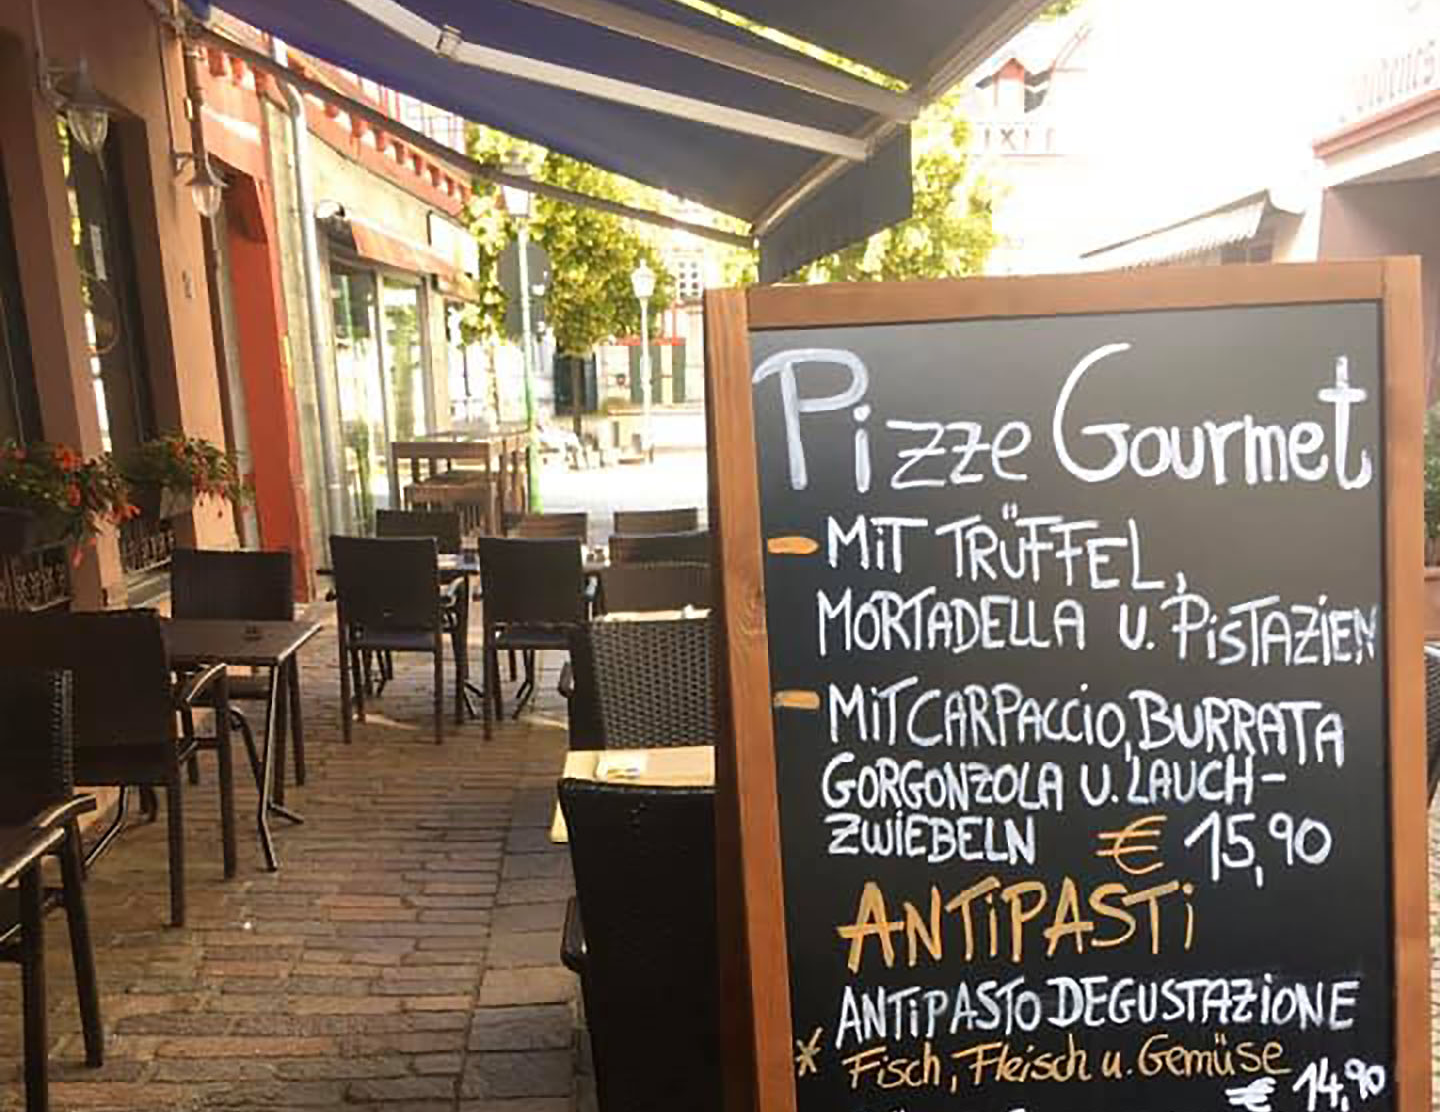 Pizze Gourmet
- MiT TRÜFFEL,
MORTADELLA U. PiSTAZiEN
- MiT CARPACCiO, BURRATA
GORGONZOLA U. LAUCH-
ZWiEBELN € 15,90
ANTiPASTi
ANTiPASTO DEGUSTAZiONE
* Fisch, Fleisch u. Gemüse
€ 14,90